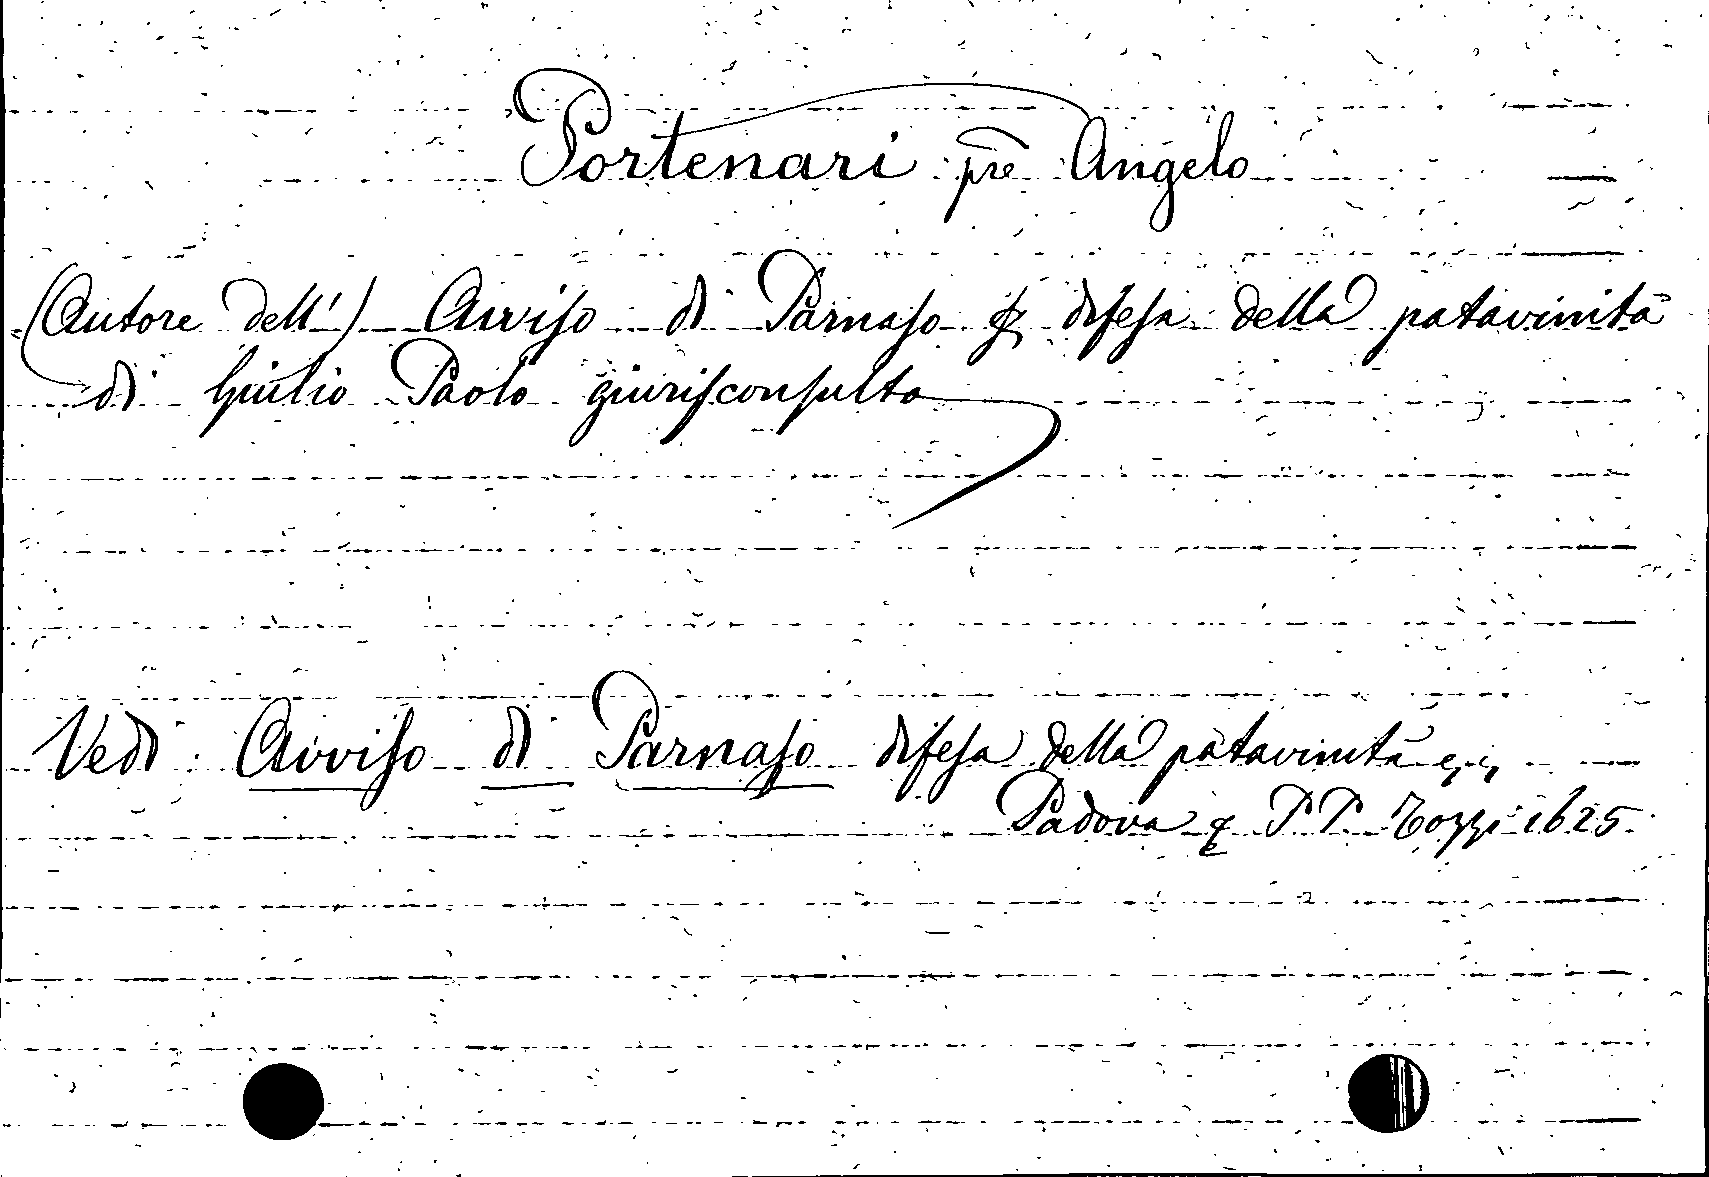 Portenari pre Angelo
(Autore dell') Avviso di Parnaso p difesa della patavinità
di Giulio Paolo giurisconsulto
Vedi Avviso di Parnaso difesa della patavinità
Padova p P.P. Tozzi 1625